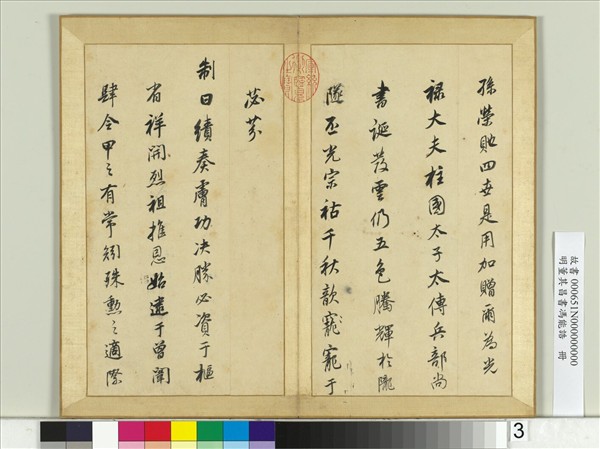 孫榮貤四世是用加贈爾為光
祿大夫柱國太子太傅兵部尚
書誕發雲仍五色騰輝於隴
隧丕光宗祏千秋歆寵寵于
苾芬
制曰續奏膚功決勝必資于樞
省祥開烈祖推恩始遠于曾闈
肆令甲之有常矧殊勳之適際
故書000651N000000000
明董其昌書馮能誥 冊
3